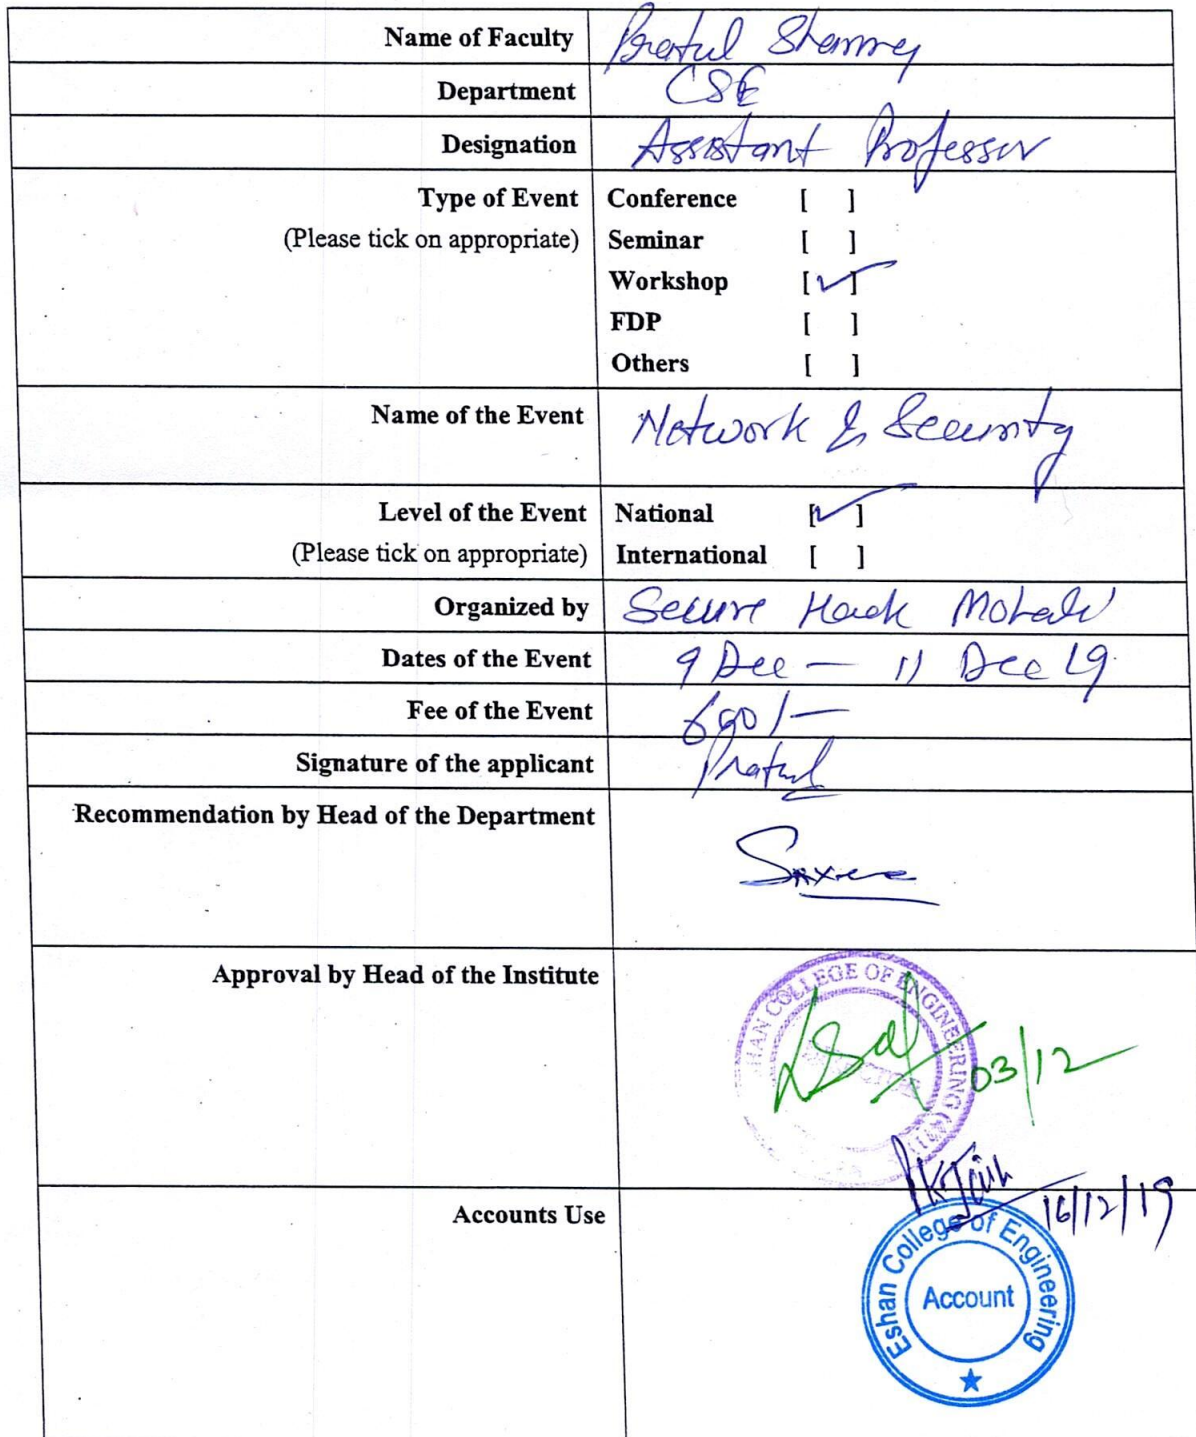 Name of Faculty Pratul Sharma
Department CSE
Designation Assistant Professor
Type of Event Conference [ ]
(Please tick on appropriate) Seminar [ ]
Workshop [✓]
FDP [ ]
Others [ ]
Name of the Event Network & Security
Level of the Event National [✓]
(Please tick on appropriate) International [ ]
Organized by Secure Hack Mohali
Dates of the Event 9 Dec — 11 Dec 19
Fee of the Event 600/—
Signature of the applicant Pratul
Recommendation by Head of the Department
Saxena
Approval by Head of the Institute
HAN COLLEGE OF ENGINEERING
03/12
PKJain
16/12/19
Accounts Use
Eshan College of Engineering
Account